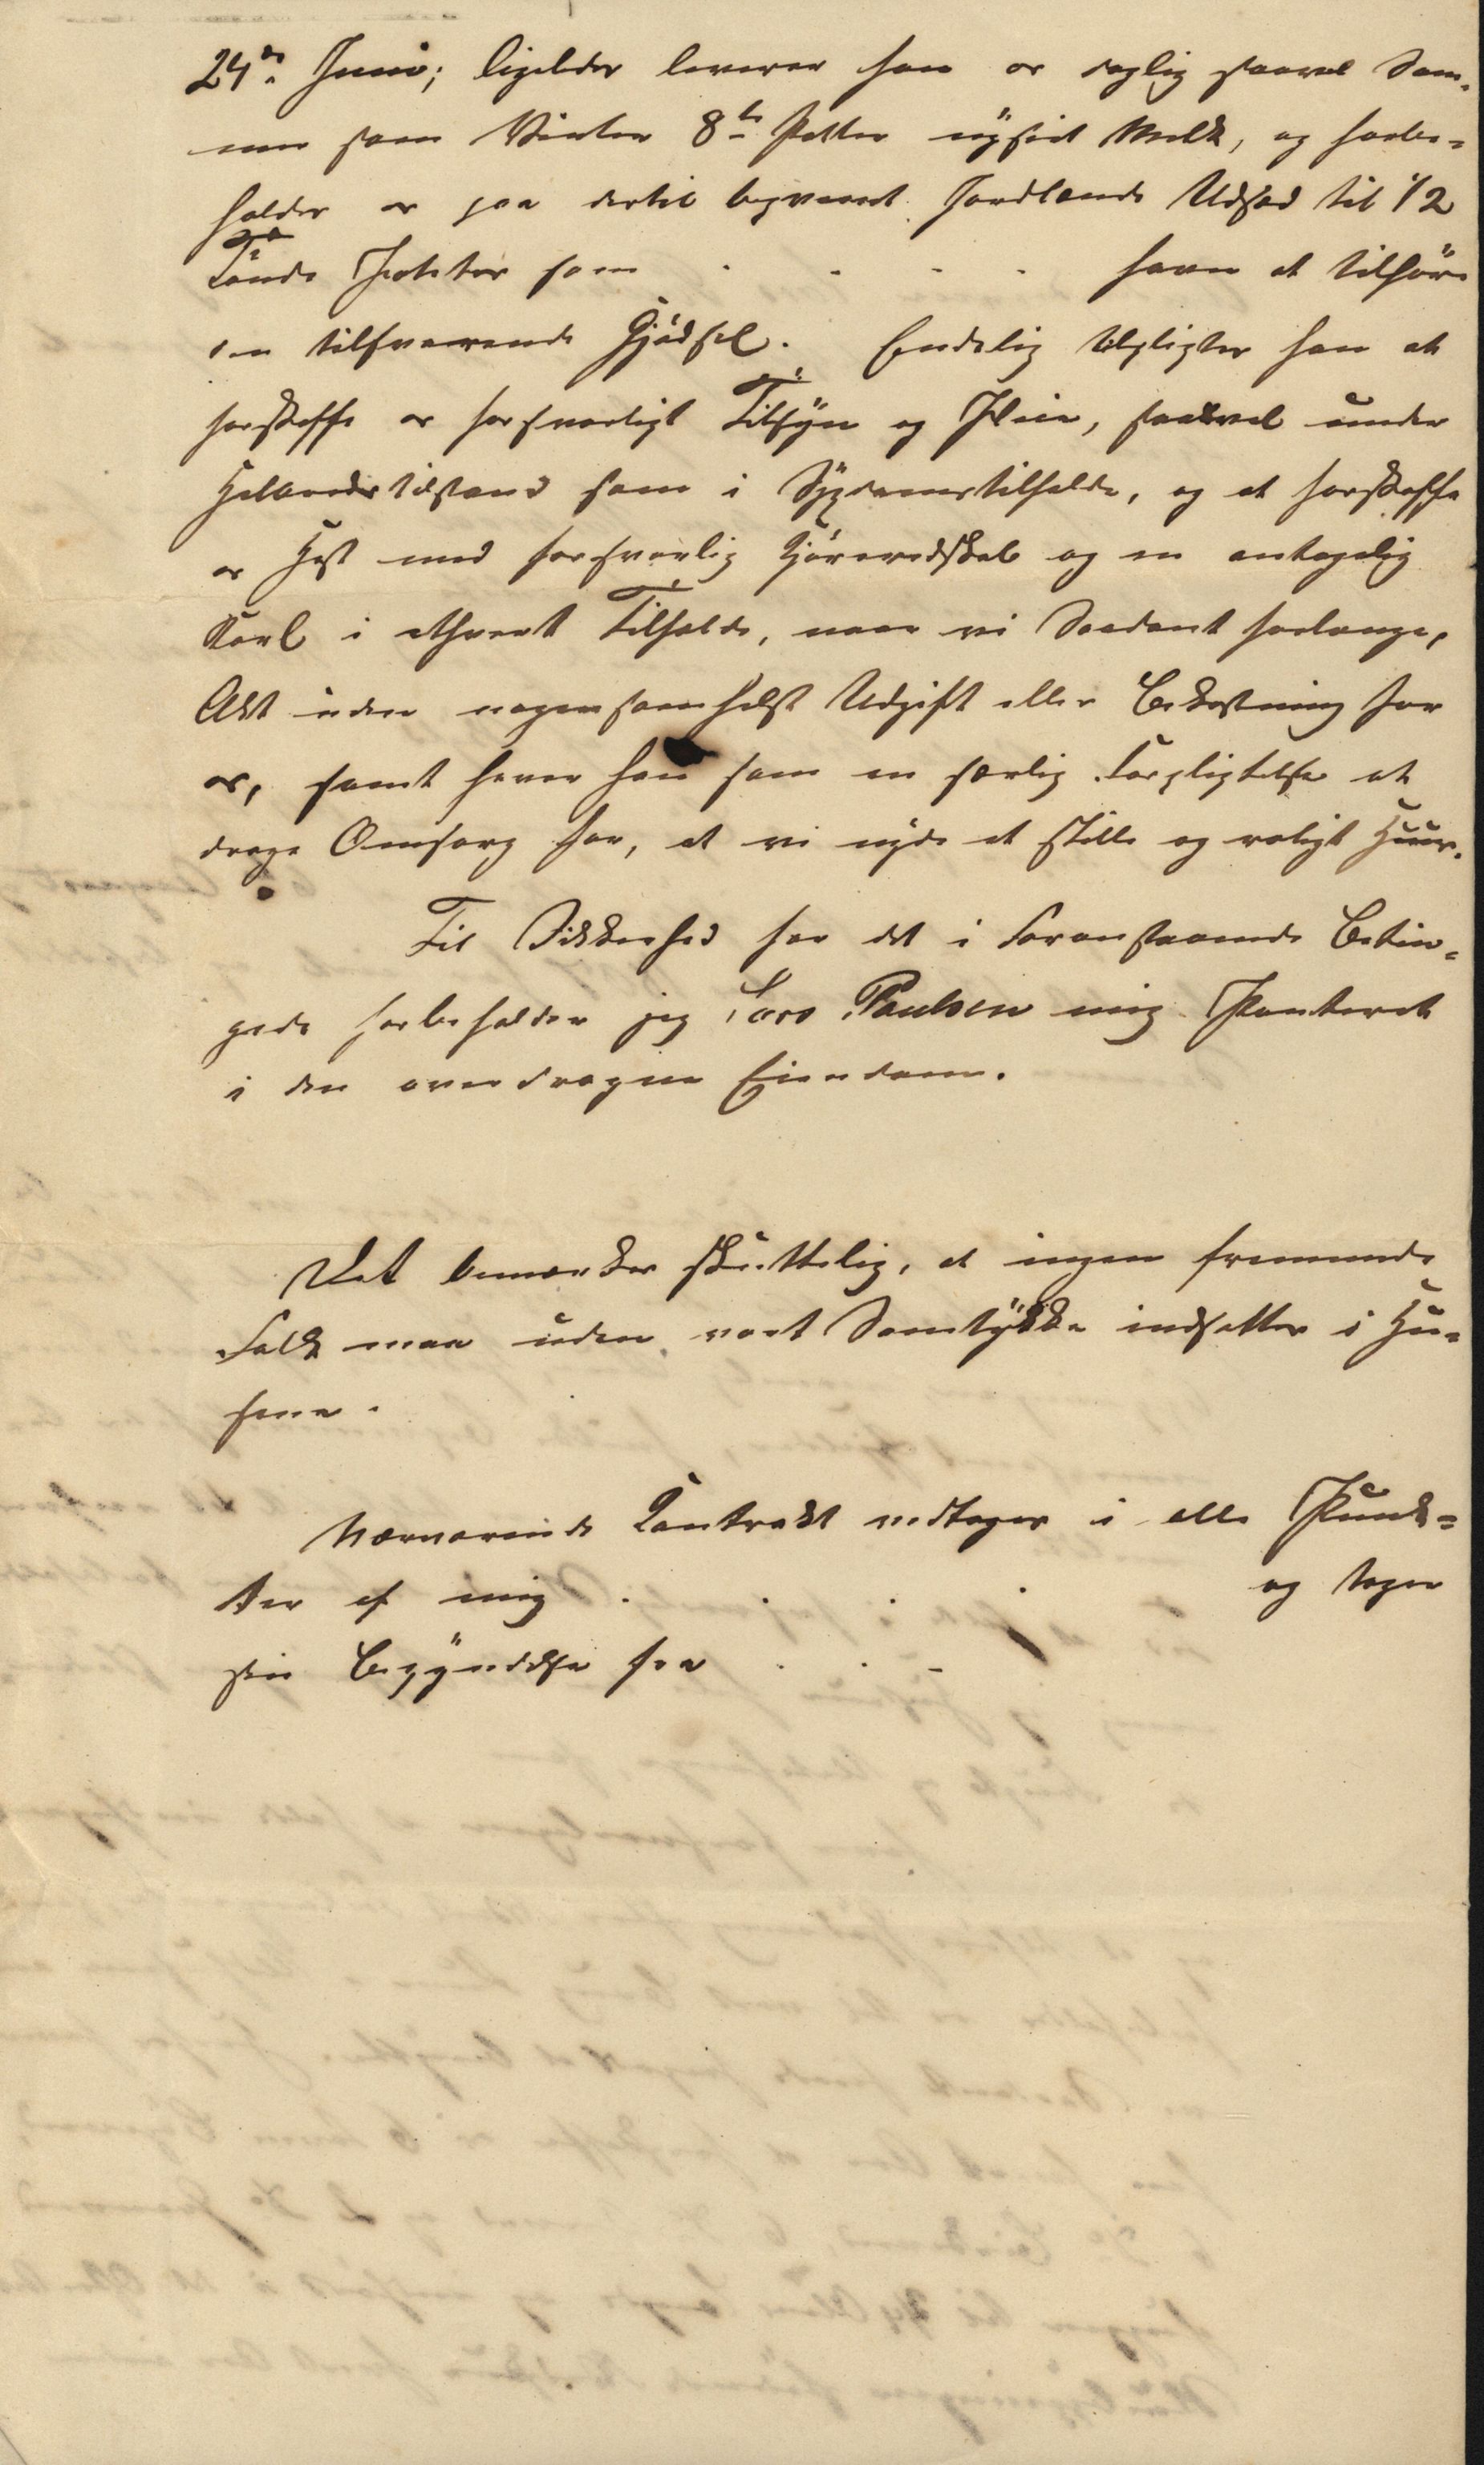 24de Juni; ligeledes leverer han os daglig saavel Som-
mer som Vinter 8te Potter nysiet Melk, og forbe-
holdes os paa dertil beqvemt Jordlænde Udsæd til 1/2
Tønde Poteter som . . . . haver at tilføre
den tilsvarende Gjødsel. Endelig tilpligtes han at
forskaffe os forsvarligt Tilsyn og Pleie, saavel under
Helbredstilstand som i Sygdomstilfælde, og at forskaffe
os Hest med forsvarlig Kjøreredskab og en antagelig
Karl i ethvert Tilfælde, naar vi Saadant forlange,
Alt uden nogensomhelst Udgift eller Bekostning for
os, samt haver han som en særlig Forpligtelse at
drage Omsorg for, at vi nyde et stille og roligt Huus.
Til Sikkerhed for det i Foranstaaende Betin-
gede forbeholder jeg Lars Paulsen mig Panteret
i den overdragne Eiendom.
Det bemærkes sluttelig, at ingen fremmede
Folk maa uden vort Samtykke indsættes i Hu-
sene.
Nærværende Contrakt vedtages i alle Punk-
ter af mig . . . og tager
sin Begyndelse fra . . -